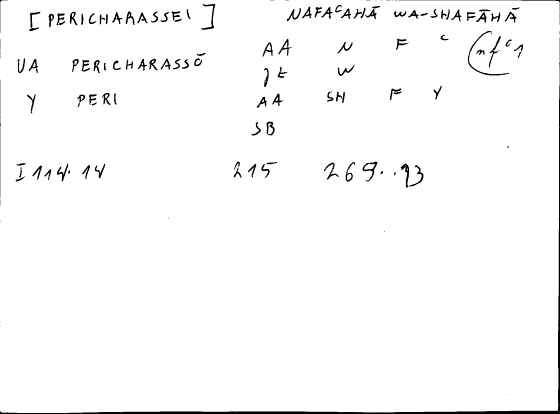 [PERICHARASSEI] NAFAᶜAHĀ WA-SHAFĀHĀ
AA N F ᶜ (nfᶜ1
VA PERICHARASSŌ
JE W
Y PERI AA SH F Y
SB
I 114.14 215 269..93